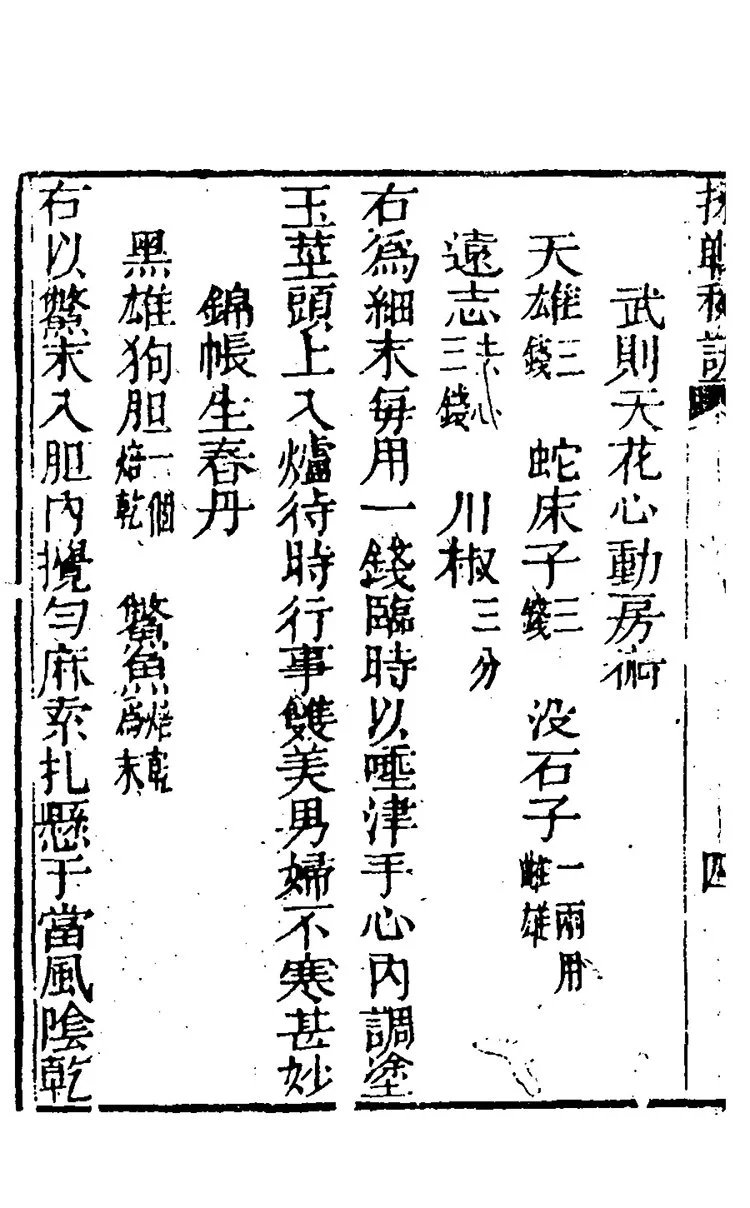 武則天花心動房術
天雄三錢 蛇床子三錢 没石子一兩用雌雄
遠志去心三錢 川椒三分
右為細末每用一錢臨時以唾津手心內調塗
玉莖頭上入爐待時行事雙美男婦不寒甚妙
錦帳生春丹
黑雄狗胆一個焙乾 鱉魚焙乾為末
右以鱉末入胆內攪勻麻索扎懸于當風陰乾
四